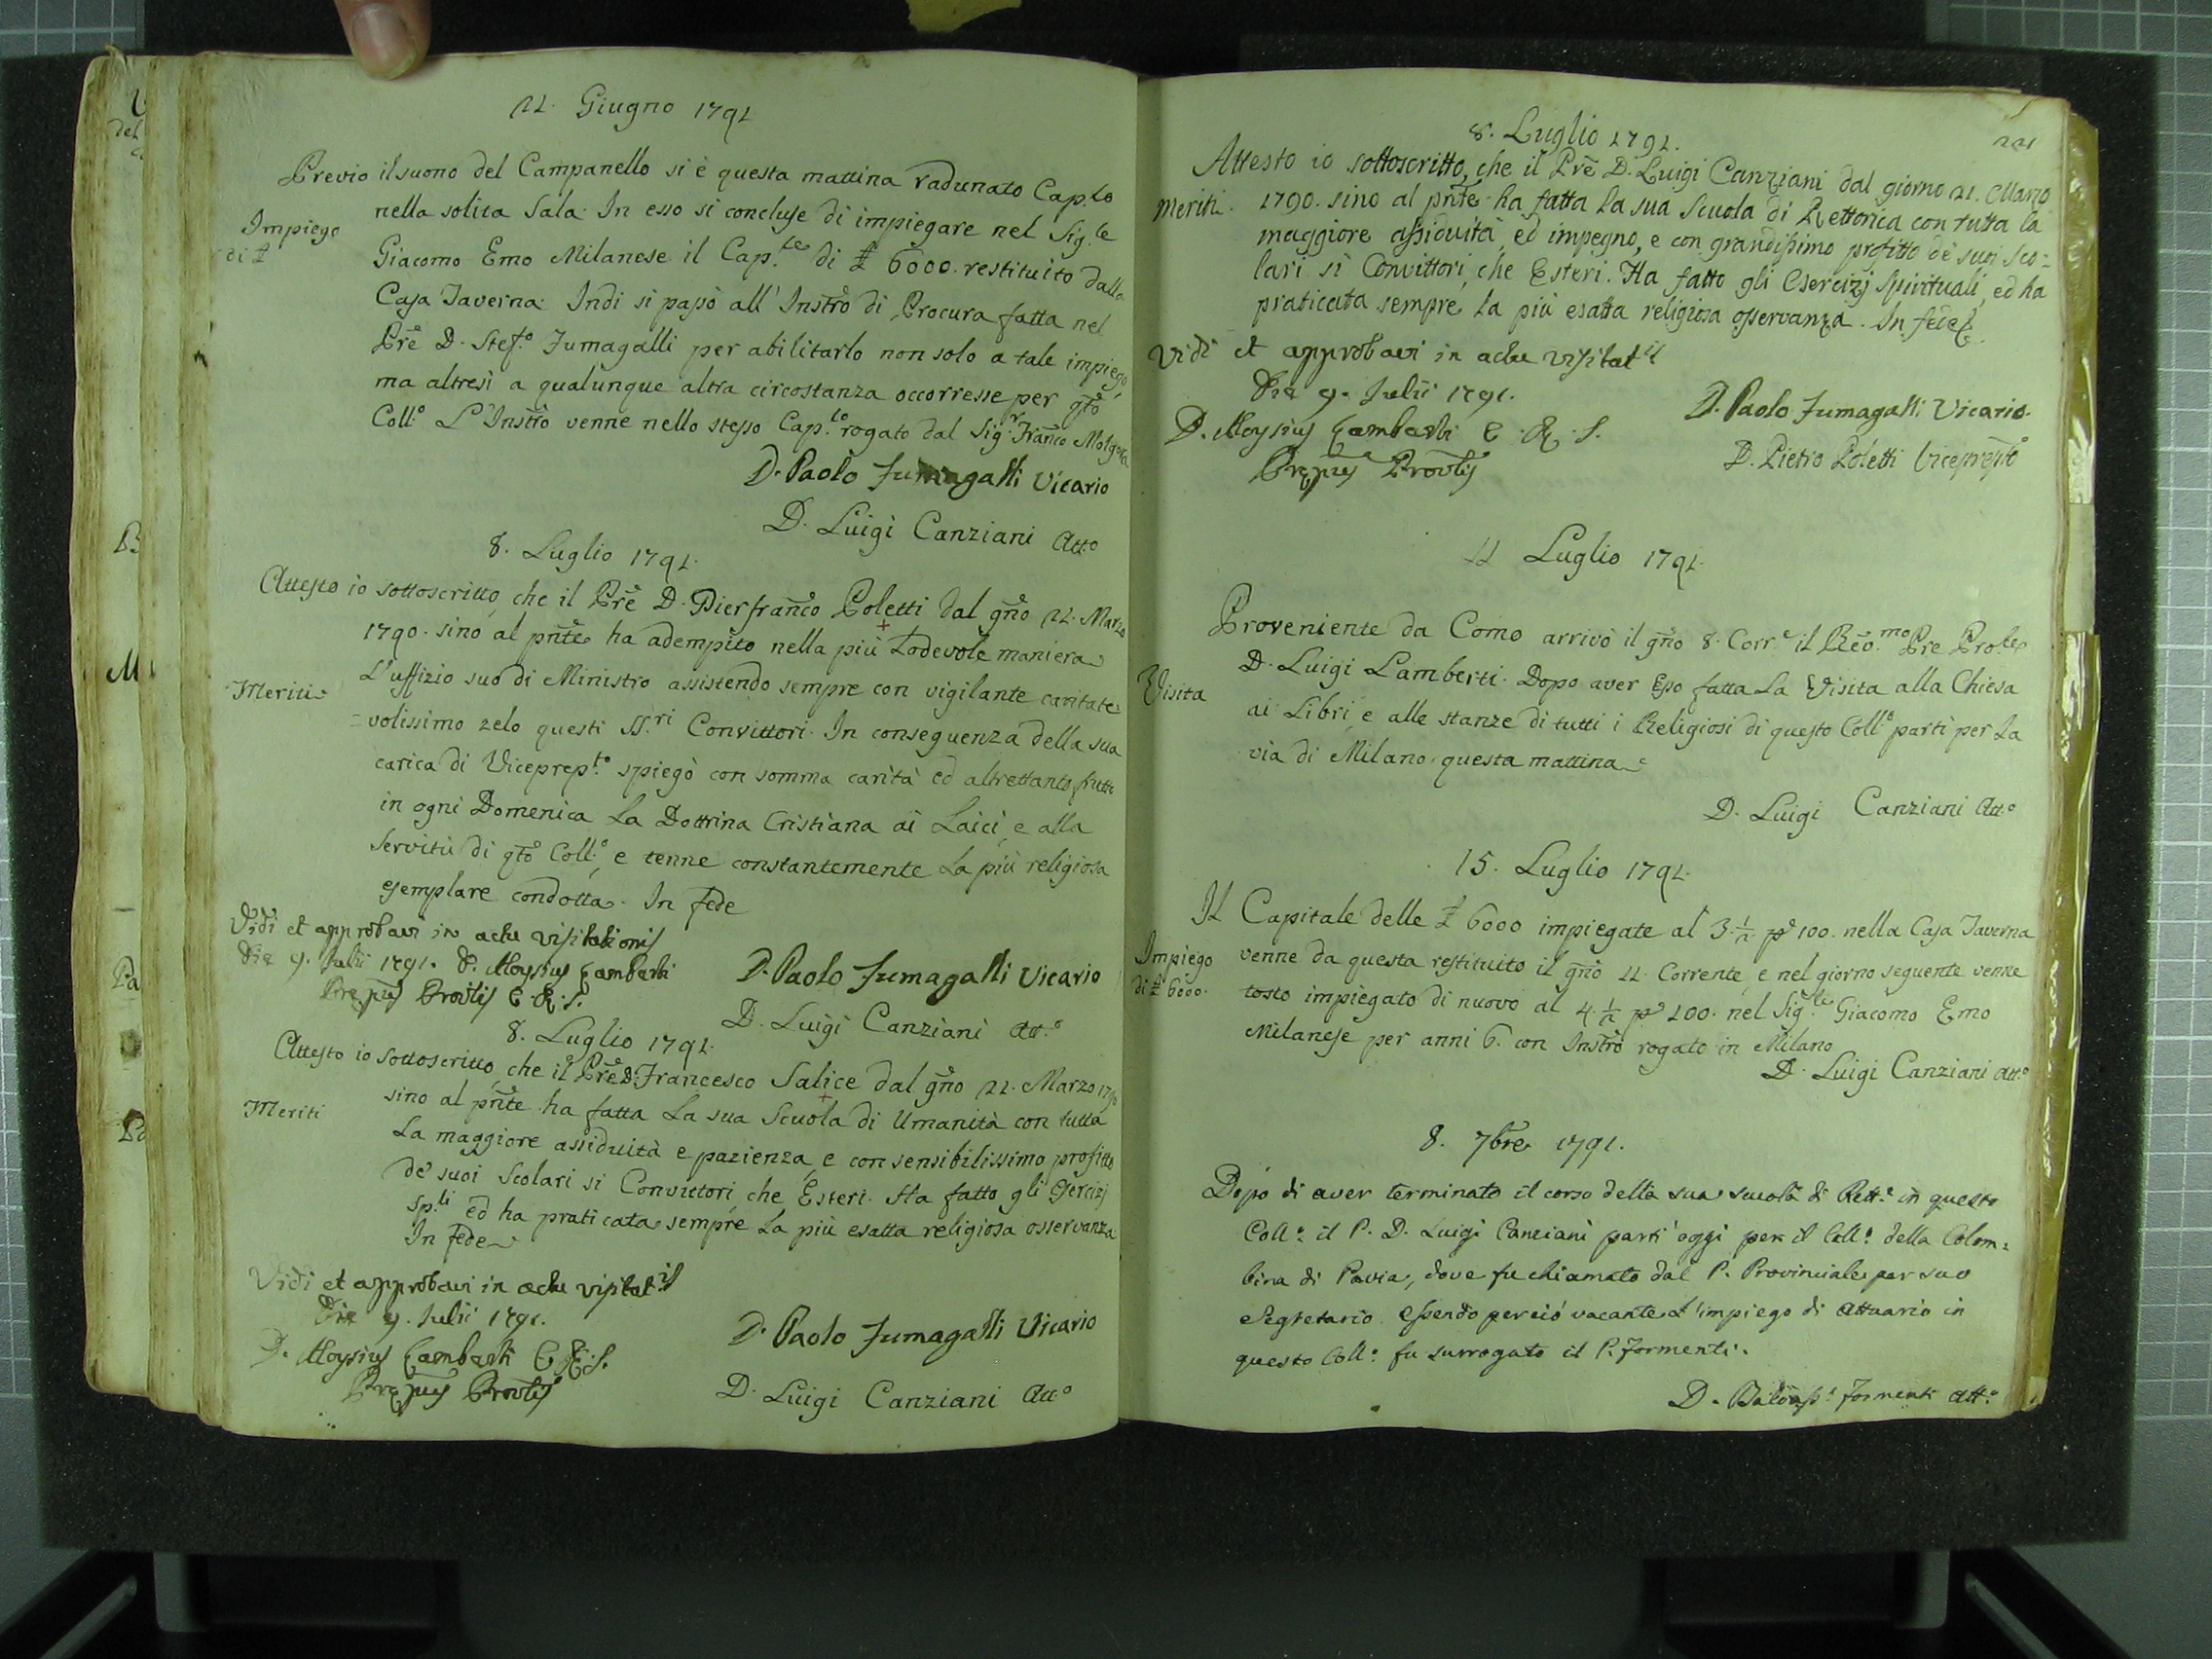 21. Giugno 1791
Previo il suono del Campanello si è questa mattina radunato Cap.lo
nella solita Sala. In esso si concluse di impiegare nel Sig.le
Impiego
di £
Giacomo Emo Milanese il Cap.le di £ 6000. restituito dalla
Casa Taverna. Indi si passò all' Instrõ di Procura fatta nel
Prẽ D. Stef.o Fumagalli per abilitarlo non solo a tale impiego,
ma altresì a qualunque altra circostanza occorresse per qtõ
Coll.o L'Instrõ venne nello stesso Cap.lo rogato dal Sig.r Franco
D. Paolo Fumagalli Vicario
D. Luigi Canziani Att.o
8. Luglio 1791.
Attesto io sottoscritto, che il Prẽ D. Pierfranco Poletti dal gño 21. Marzo
1790. sino al pñte ha adempito nella più lodevole maniera
L'uffizio suo di Ministro assistendo sempre con vigilante caritate=
Meriti
=volissimo zelo questi SS.ri Convittori. In conseguenza della sua
carica di Viceprep.to spiegò con somma carità ed altrettanto frutto
in ogni Domenica la Dottrina Cristiana ai Laici, e alla
Servitù di qtõ Coll.o, e tenne constantemente la più religiosa
esemplare condotta. In fede
Vidi et approbavi in actu visitationis
Die 9. Julii 1791. D. Aloysius Lamberti
Prępus Provlis C. R. S.
D. Paolo Fumagalli Vicario
D. Luigi Canziani Att.o
8. Luglio 1791.
Attesto io sottoscritto, che il Prẽ D. Francesco Salice dal gño 21. Marzo 1790
sino al pñte ha fatta la sua Scuola di Umanità con tutta
Meriti
la maggiore assiduità e pazienza, e con sensibilissimo profitto
de' suoi Scolari si Convittori, che Esteri. Ha fatto gli Esercizj
Sp.li ed ha praticata sempre la più esatta religiosa osservanza.
In fede
Vidi et approbavi in actu visitat.is
Die 9. Julii 1791.
D. Aloysius Lamberti C. R. S.
Prępus Provlis
D. Paolo Fumagalli Vicario
D. Luigi Canziani Att.o
221
8. Luglio 1791.
Attesto io sottoscritto, che il Prẽ D. Luigi Canziani dal giorno 21. Marzo
Meriti.
1790. sino al pñte ha fatta la sua Scuola di Rettorica con tutta la
maggiore assiduità, ed impegno, e con grandissimo profitto de' suoi Sco=
lari sì Convittori, che Esteri. Ha fatto gli Esercizj Spirituali, ed ha
praticata sempre la più esatta religiosa osservanza. In fede
Vidi et approbavi in actu visitat.is
Die 9. Julii 1791.
D. Aloysius Lamberti C. R. S.
Prępus Provlis
D. Paolo Fumagalli Vicario.
D. Pietro Poletti Viceprepto
11 Luglio 1791.
Proveniente da Como arrivò il gño 8. Corr.e il Reõ.mo Pre Pro.le
D. Luigi Lamberti. Dopo aver Esso fatta la Visita alla Chiesa
Visita
ai Libri, e alle stanze di tutti i Religiosi di questo Coll.o partì per la
via di Milano questa mattina
D. Luigi Canziani Att.o
15. Luglio 1791.
Il Capitale delle £ 6000 impiegate al 3. 1/2 p% 100. nella Casa Taverna
Impiego
di £ 6000.
venne da questa restituito il gño 11. Corrente, e nel giorno seguente venne
tosto impiegato di nuovo al 4. 1/2 p% 100. nel Sig.le Giacomo Emo
Milanese per anni 6. con Instrõ rogato in Milano
D. Luigi Canziani Att.o
8. 7bre 1791.
Dopo di aver terminato il corso della sua scuola di Rett.a in questo
Coll.o il P. D. Luigi Canziani partì oggi per il Coll.o della Colom=
bina di Pavia, dove fu chiamato dal P. Provinciale per suo
Segretario. Essendo perciò vacante l'impiego di Attuario in
questo Coll.o fu surrogato il P. Formenti.
D. Baldass.e Formenti Att.o